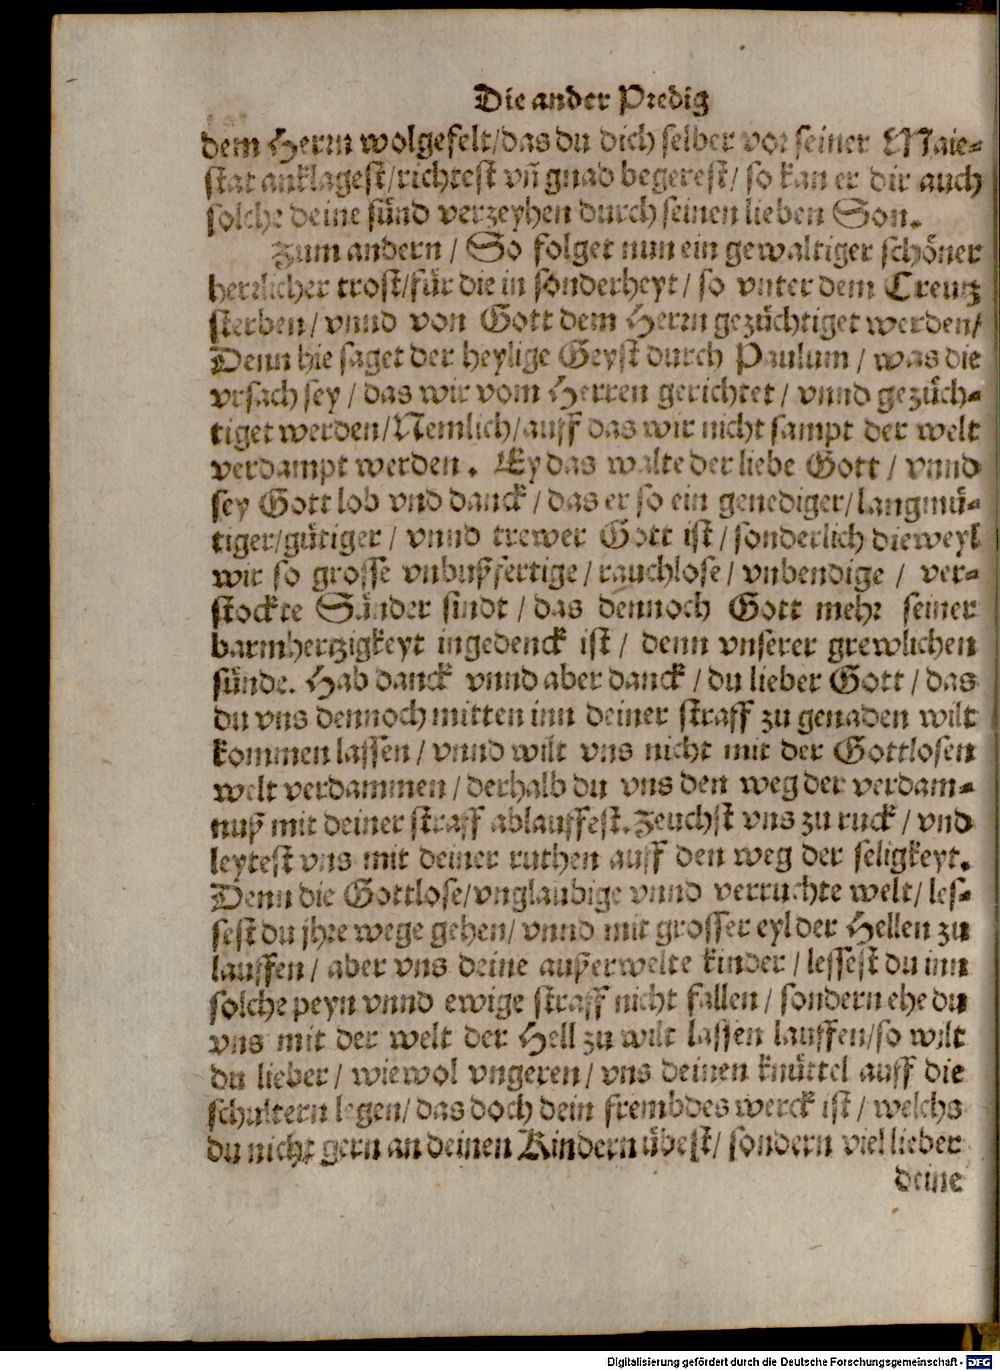 Die ander Predig
dem Herrn wolgefelt/das du dich selber vor seiner Maie-
stat anklagest/richtest vñ gnad begerest/ so kan er dir auch
solche deine sünd verzeyhen durch seinen lieben Son.
Zum andern / So folget nun ein gewaltiger schöner
hertzlicher trost/für die in sonderheyt/ so vnter dem Creutz
sterben/ vnnd von Gott dem Herrn gezüchtiget werden/
Denn hie saget der heylige Geyst durch Paulum / was die
vrsach sey / das wir vom Herren gerichtet / vnnd gezüch-
tiget werden/Nemlich/auff das wir nicht sampt der welt
verdampt werden. Ey das walte der liebe Gott / vnnd
sey Gott lob vnd danck / das er so ein genediger/langmü-
tiger/gütiger / vnnd trewer Gott ist / sonderlich dieweyl
wir so grosse vnbußfertige / rauchlose / vnbendige / ver-
stockte Sünder sindt / das dennoch Gott mehr seiner
barmhertzigkeyt ingedenck ist / denn vnserer grewlichen
sünde. Hab danck vnnd aber danck / du lieber Gott / das
du vns dennoch mitten inn deiner straff zu genaden wilt
kommen lassen / vnnd wilt vns nicht mit der Gottlosen
welt verdammen / derhalb du vns den weg der verdam-
nuß mit deiner straff ablauffest. Zeuchst vns zu ruck / vnd
leytest vns mit deiner ruthen auff den weg der seligkeyt.
Denn die Gottlose/vnglaubige vnnd verruchte welt/ les-
sest du jhre wege gehen/ vnnd mit grosser eyl der Hellen zu
lauffen / aber vns deine außerwelte kinder / lessest du inn
solche peyn vnnd ewige straff nicht fallen / sondern ehe du
vns mit der welt der Hell zu wilt lassen lauffen/so wilt
du lieber / wiewol vngeren / vns deinen knüttel auff die
schultern legen/ das doch dein frembdes werck ist / welchs
du nicht gern an deinen Kindern übest/ sondern viel lieber
deine
Digitalisierung gefördert durch die Deutsche Forschungsgemeinschaft - DFG